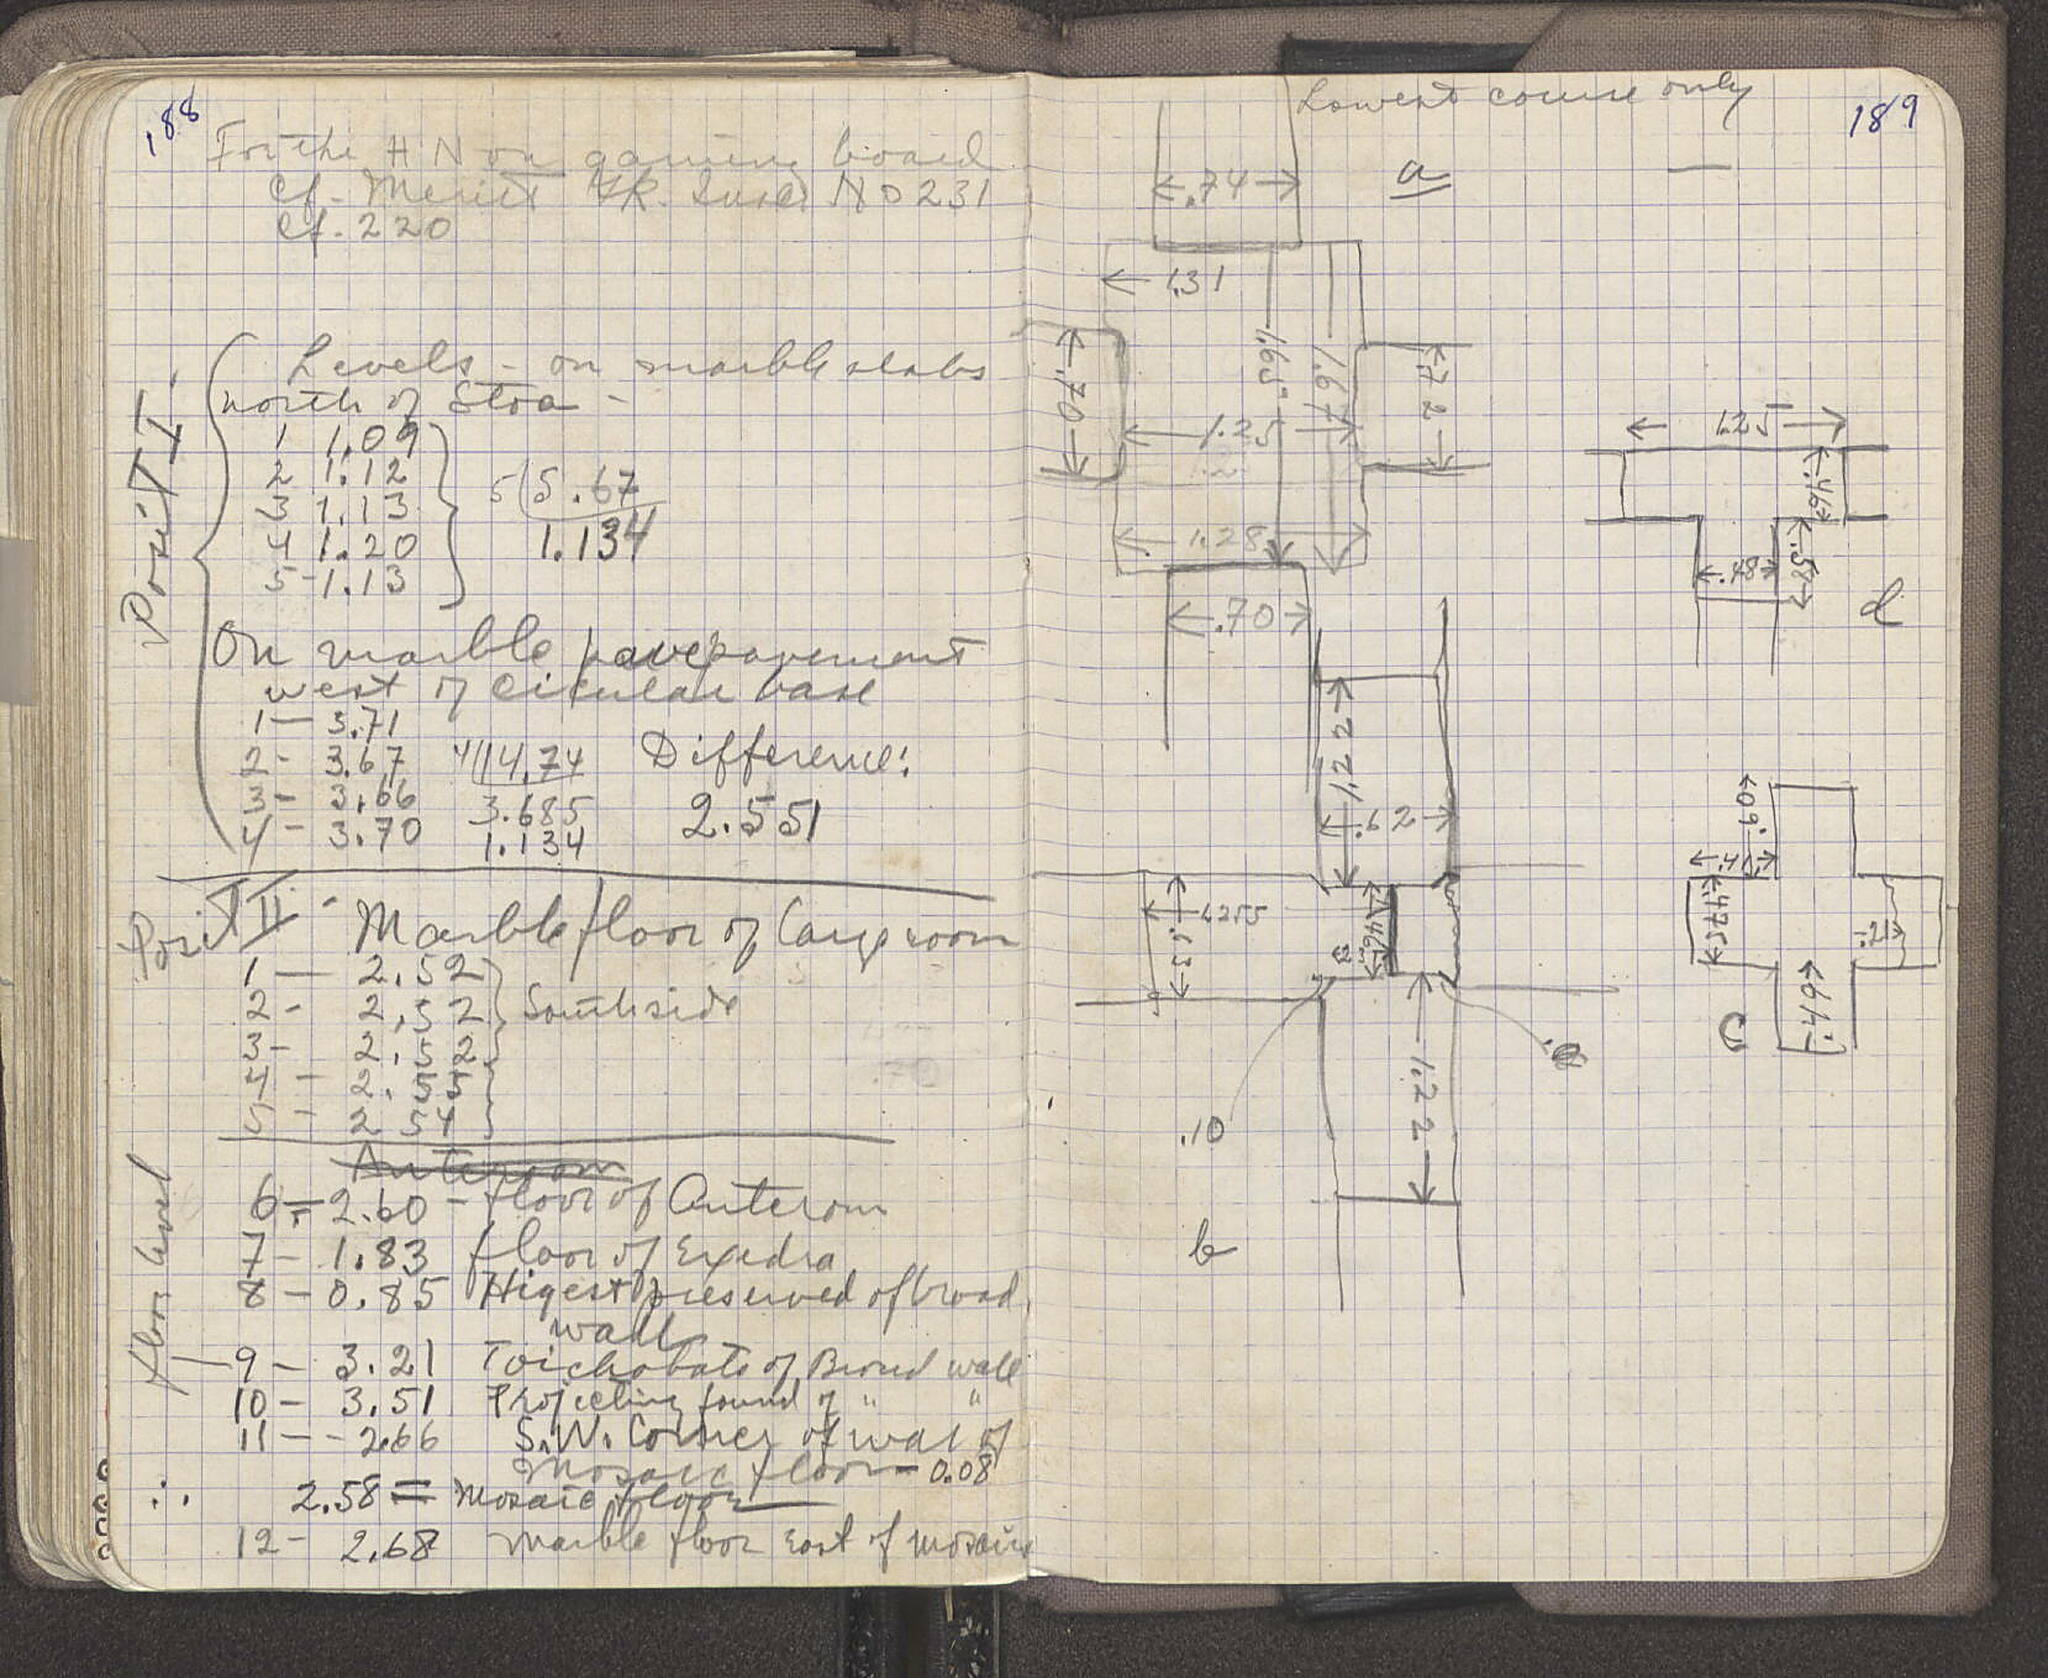 188
For the HN on gaming board
cf. Meritt GR. Inscr. No 231
cf. 220
Posit I.
Levels - on marble slabs
north of Stoa -
1 1.09
2 1.12
3 1.13
4 1.20
5 - 1.13
5/5.67
1.134
On marble pavepavement
west of circular base
1 - 3.71
2 - 3.67
3 - 3.66
4 - 3.70
4/14.74
3.685
1.134
Difference:
2.551
Posit II - Marble floor of Large room
1 - 2.52
2 - 2.52
3 - 2.52
4 - 2.55
5 - 2 54
South side
Anteroom
floor level
6 = 2.60 - floor of Anterom
7 - 1.83 floor of Exedra
8 - 0.85 Higest preserved of broad
wall
9 - 3.21 Toichobate of Broad wall
10 - 3.51 Projecting found of " "
11 - - 2.66 S.W. Corner of wal of
Mosaic floor - 0.08
∴ 2.58 = Mosaic floor
12 - 2.68 Marble floor East of Mosaic
189
Lowest course only
a
.74
1.31
.70
1.65
1.67
.72
1.25
1.28
.70
1.25
.46
.48
.58
d
1.22
.62
1.255
.53
.23
.46
1.22
.10
b
.60
.41
.475
.21
.49
C